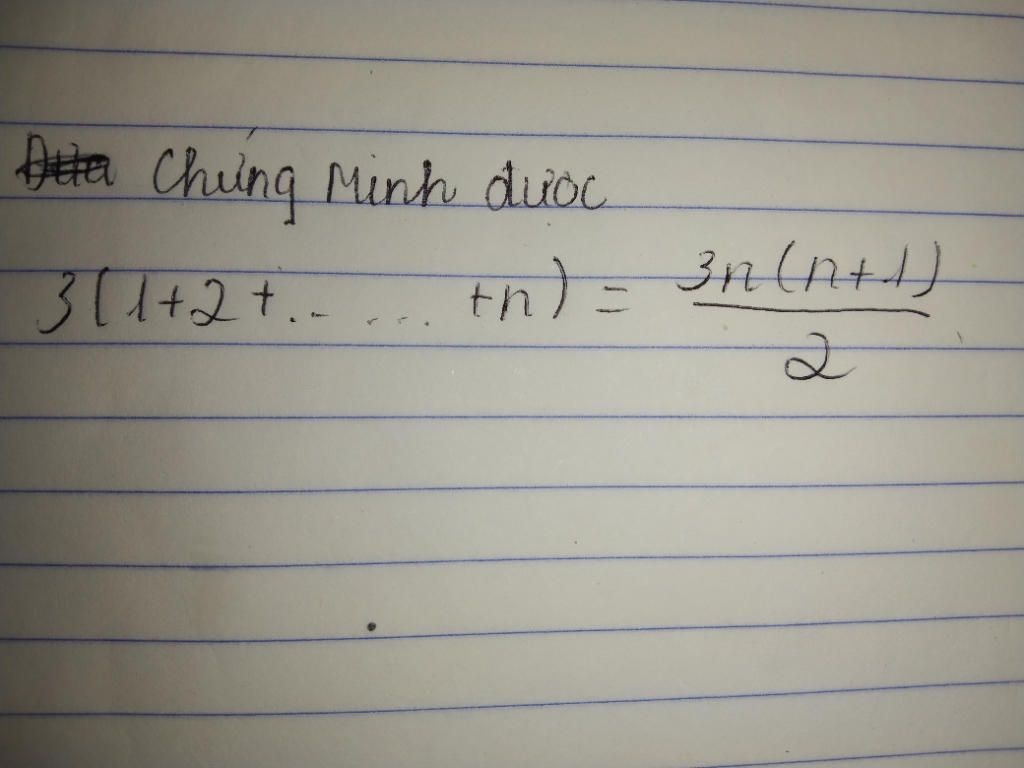 Chứng Minh được
3(1+2+..- ... +n) = \frac{3n(n+1)}{2}